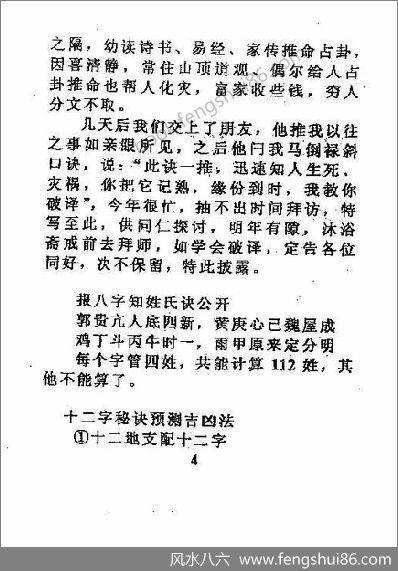 之隔，幼读诗书、易经、家传推命占卦，
因喜清静，常住山顶道观，偶尔给人占
卦推命也帮人化灾，富家收些钱，穷人
分文不取。
几天后我们交上了朋友，他推我以往
之事如亲眼所见，之后他问我马倒禄斜
口诀，说：“此诀一推，迅速知人生死、
灾祸，你把它记熟，缘份到时，我教你
破译”，今年很忙，抽不出时间拜访，特
写至此，供同仁探讨，明年有隙，沐浴
斋戒前去拜师，如学会破译，定告各位
同好，决不保留，特此披露。
报八字知姓氏诀公开
郭贵亢人底四新，黄庚心已魏屋成
鸡丁斗丙牛时一，雨甲原来定分明
每个字管四姓，共能计算112姓，其
他不能算了。
十二字秘诀预测吉凶法
①十二地支配十二字
4
风水八六 - www.fengshui86.com